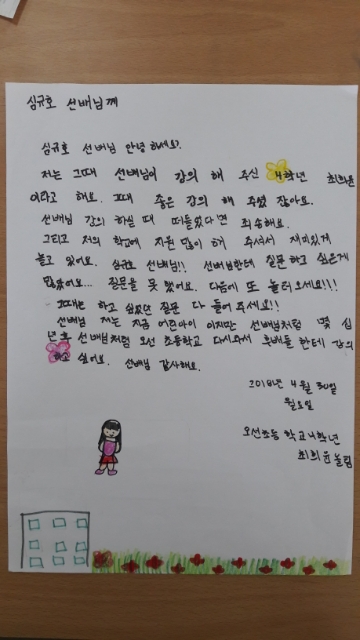 심규호 선배님께
심규호 선배님 안녕하세요?
저는 그때 선배님이 강의 해 주신 4학년 최희윤
이라고 해요. 그때 좋은 강의 해 주셨 잖아요.
선배님 강의 하실 때 떠들었다면 죄송해요.
그리고 저희 학교에 지원 많이 해 주셔서 재미있게
놀고 있어요. 심규호 선배님!! 선배님한테 질문 하고 싶은게
많았어요... 질문을 못 했어요. 다음에 또 놀러 오세요!!!
그때는 하고 싶었던 질문 다 들어 주세요!!
선배님 저는 지금 어린아이 이지만 선배님처럼 몇 십
년 후 선배님처럼 오선 초등학교 다시와서 후배들 한테 강의
하고 싶어요. 선배님 감사해요.
2018년 4월 30일
월요일
오선초등 학교 4학년
최희윤 올림